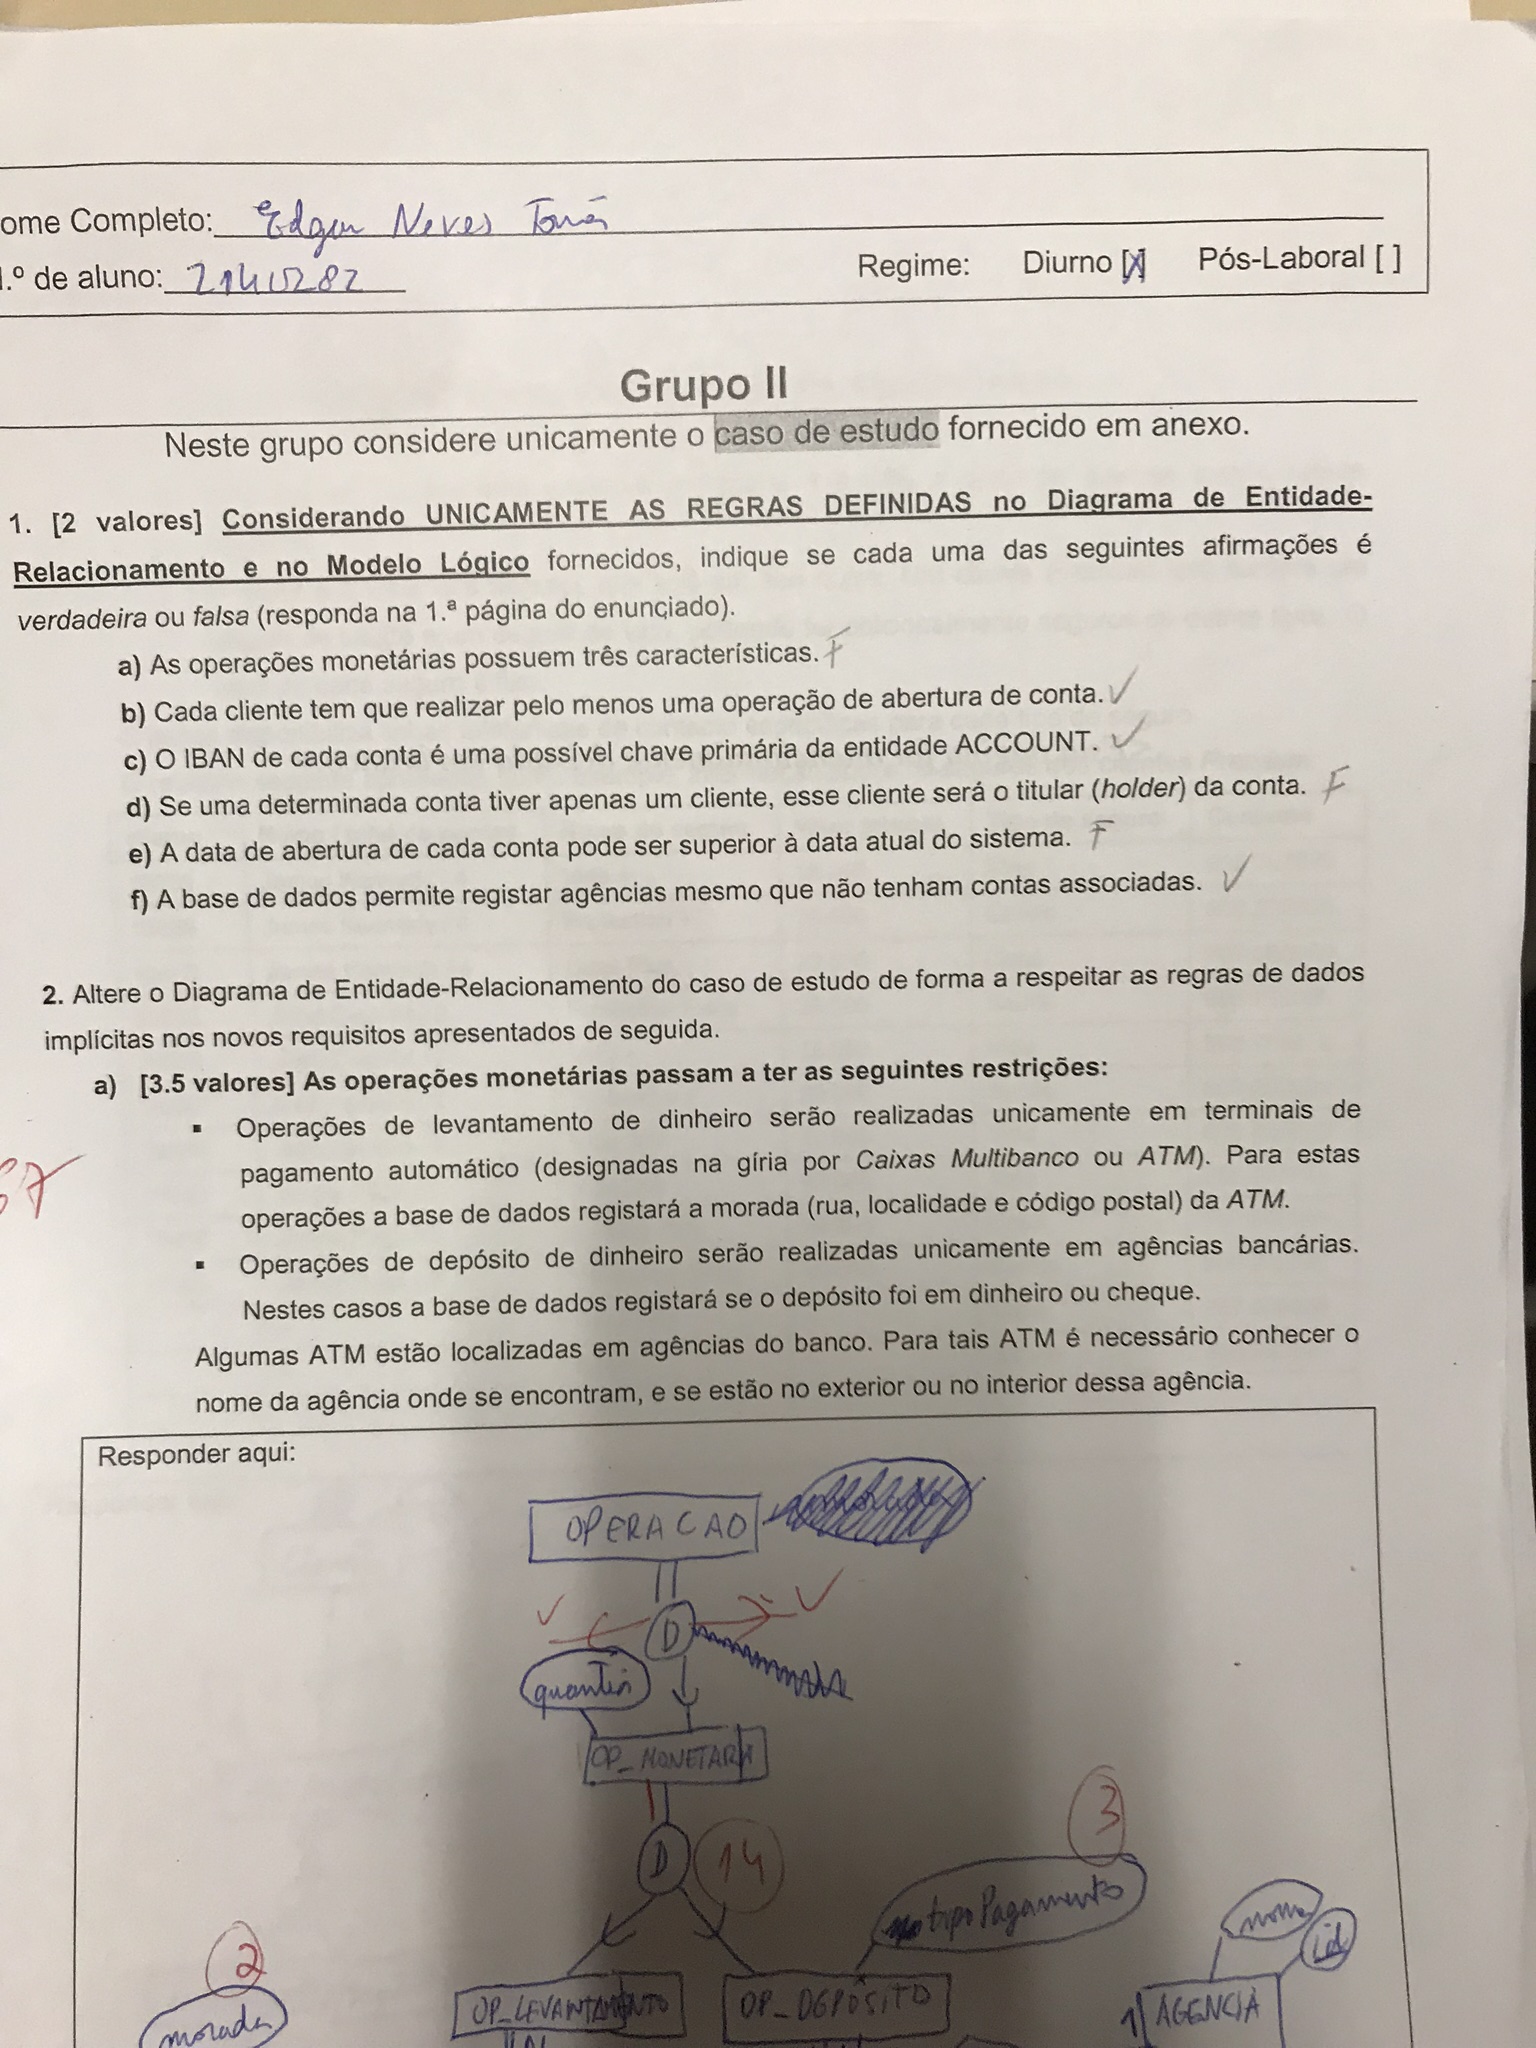 ome Completo: Edgar Neves Tomé
.º de aluno: 2140282 Regime: Diurno [X] Pós-Laboral [ ]
Grupo II
Neste grupo considere unicamente o caso de estudo fornecido em anexo.
1. [2 valores] Considerando UNICAMENTE AS REGRAS DEFINIDAS no Diagrama de Entidade-
Relacionamento e no Modelo Lógico fornecidos, indique se cada uma das seguintes afirmações é
verdadeira ou falsa (responda na 1.ª página do enunciado).
a) As operações monetárias possuem três características. F
b) Cada cliente tem que realizar pelo menos uma operação de abertura de conta. ✓
c) O IBAN de cada conta é uma possível chave primária da entidade ACCOUNT. ✓
d) Se uma determinada conta tiver apenas um cliente, esse cliente será o titular (holder) da conta. F
e) A data de abertura de cada conta pode ser superior à data atual do sistema. F
f) A base de dados permite registar agências mesmo que não tenham contas associadas. ✓
2. Altere o Diagrama de Entidade-Relacionamento do caso de estudo de forma a respeitar as regras de dados
implícitas nos novos requisitos apresentados de seguida.
a) [3.5 valores] As operações monetárias passam a ter as seguintes restrições:
▪ Operações de levantamento de dinheiro serão realizadas unicamente em terminais de
pagamento automático (designadas na gíria por Caixas Multibanco ou ATM). Para estas
operações a base de dados registará a morada (rua, localidade e código postal) da ATM.
▪ Operações de depósito de dinheiro serão realizadas unicamente em agências bancárias.
Nestes casos a base de dados registará se o depósito foi em dinheiro ou cheque.
Algumas ATM estão localizadas em agências do banco. Para tais ATM é necessário conhecer o
nome da agência onde se encontram, e se estão no exterior ou no interior dessa agência.
Responder aqui:
OPERACAO
D
quantia
OP_MONETARIA
3
D 14
tipoPagamento
nome
id
2
OP_LEVANTAMENTO OP_DEPÓSITO 1 AGENCIA
morada